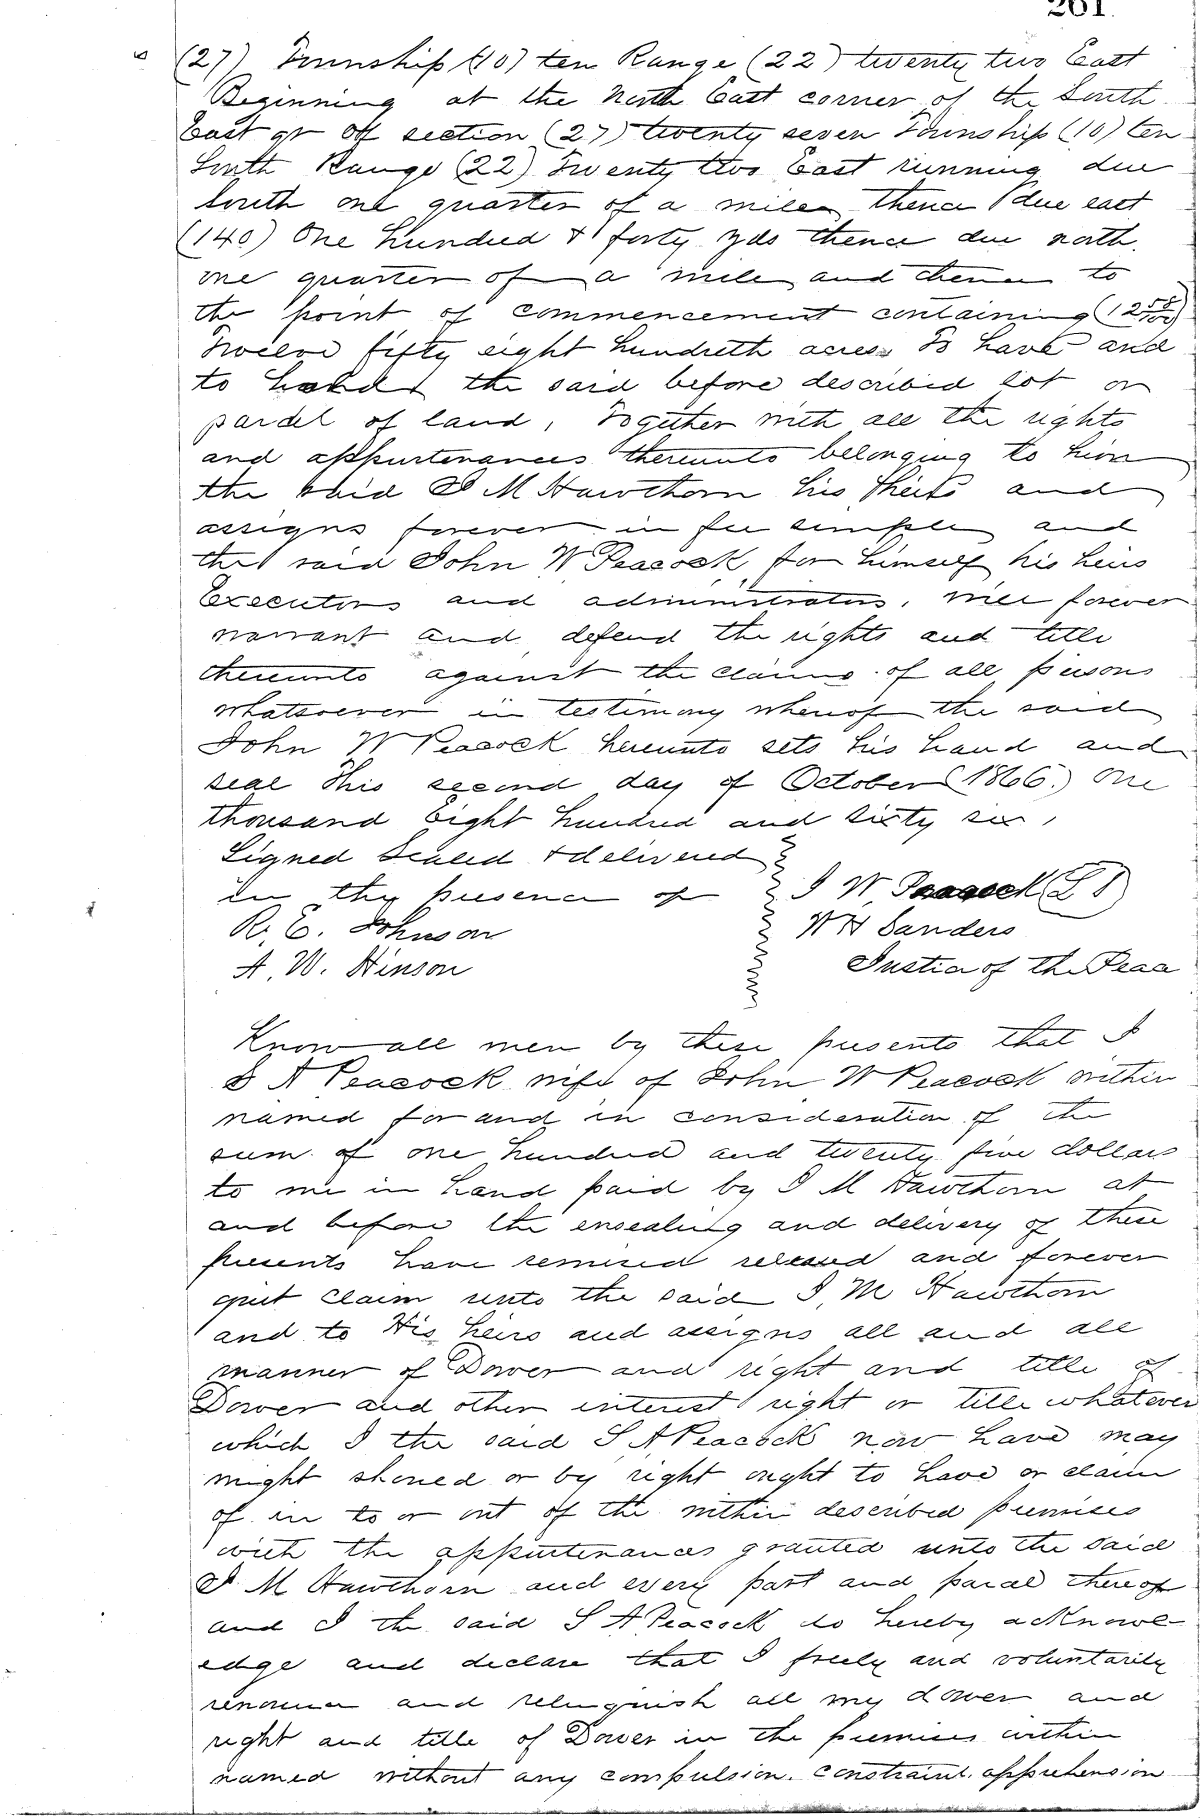 261
(27) Township (10) ten Range (22) twenty two East
Beginning at the North East corner of the South
East qr of section (27) twenty seven Township (10) ten
South Range (22) Twenty two East running due
South one quarter of a mile thence due east
(140) One hundred & forty yds thence due north
one quarter of a mile and thence to
the point of commencement containing (12 58/100)
Twelve fifty eight hundreth acres To have and
to hold the said before described lot or
parcel of land, Together with all the rights
and appurtenances thereunto belonging to him
the said J M Hawthorn his heirs and
assigns forever in fee simple and
the said John W Peacock for himself his heirs
Executors and administrators, will forever
warrant and defend the rights and title
thereunto against the claims of all persons
whatsoever in testimony whereof the said
John W Peacock hereunto sets his hand and
seal this second day of October (1866.) One
thousand Eight hundred and sixty six,
Signed Sealed & delivered
in the presence of J W Peacock (L S)
R. E. Johnson W H Sanders
A. W. Hinson Justice of the Peace
Know all men by these presents that I
S A Peacock wife of John W Peacock within
named for and in consideration of the
sum of one hundred and twenty five dollars
to me in hand paid by J M Hawthorn at
and before the ensealing and delivery of these
presents have remised released and forever
quit claim unto the said J, M Hawthorn
and to His heirs and assigns all and all
manner of Dower and right and title of
Dower and other interest right or title whatever
which I the said S A Peacock now have may
might should or by right ought to have or claim
of in to or out of the within described premises
with the appurtenances granted unto the said
J M Hawthorn and every part and parcel thereof
and I the said S A Peacock do hereby acknowl-
edge and declare that I freely and voluntarily
renounce and relinquish all my dower and
right and title of Dower in the premises within
named without any compulsion. constraint. apprehension